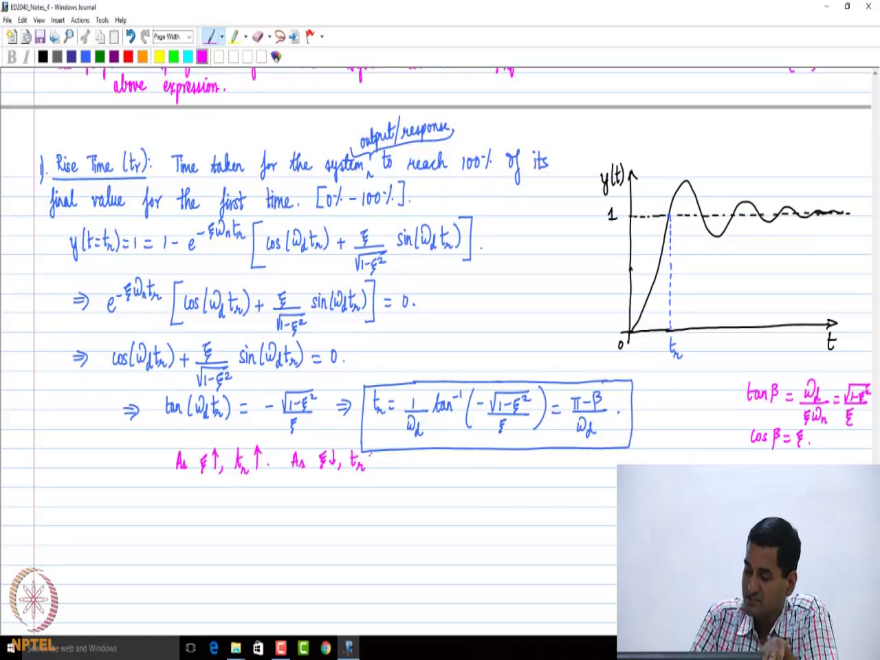 ED2040_Notes_4 - Windows Journal
File Edit View Insert Actions Tools Help
Page Width
B I
above expression.
output/response
1). Rise Time (tr): Time taken for the system^ to reach 100% of its
final value for the first time. [0% - 100%].
y(t=tr) = 1 = 1 - e^{-ξωn tr} [cos(ωd tr) + ξ/√(1-ξ²) sin(ωd tr)].
⇒ e^{-ξωn tr} [cos(ωd tr) + ξ/√(1-ξ²) sin(ωd tr)] = 0.
⇒ cos(ωd tr) + ξ/√(1-ξ²) sin(ωd tr) = 0.
⇒ tan(ωd tr) = - √(1-ξ²)/ξ ⇒ tr = 1/ωd tan⁻¹(- √(1-ξ²)/ξ) = (π-β)/ωd .
As ξ↑, tr↑. As ξ↓, tr
y(t)
1
0
tr
t
tanβ = ωd/ξωn = √(1-ξ²)/ξ
cosβ = ξ.
NPTEL
the web and Windows